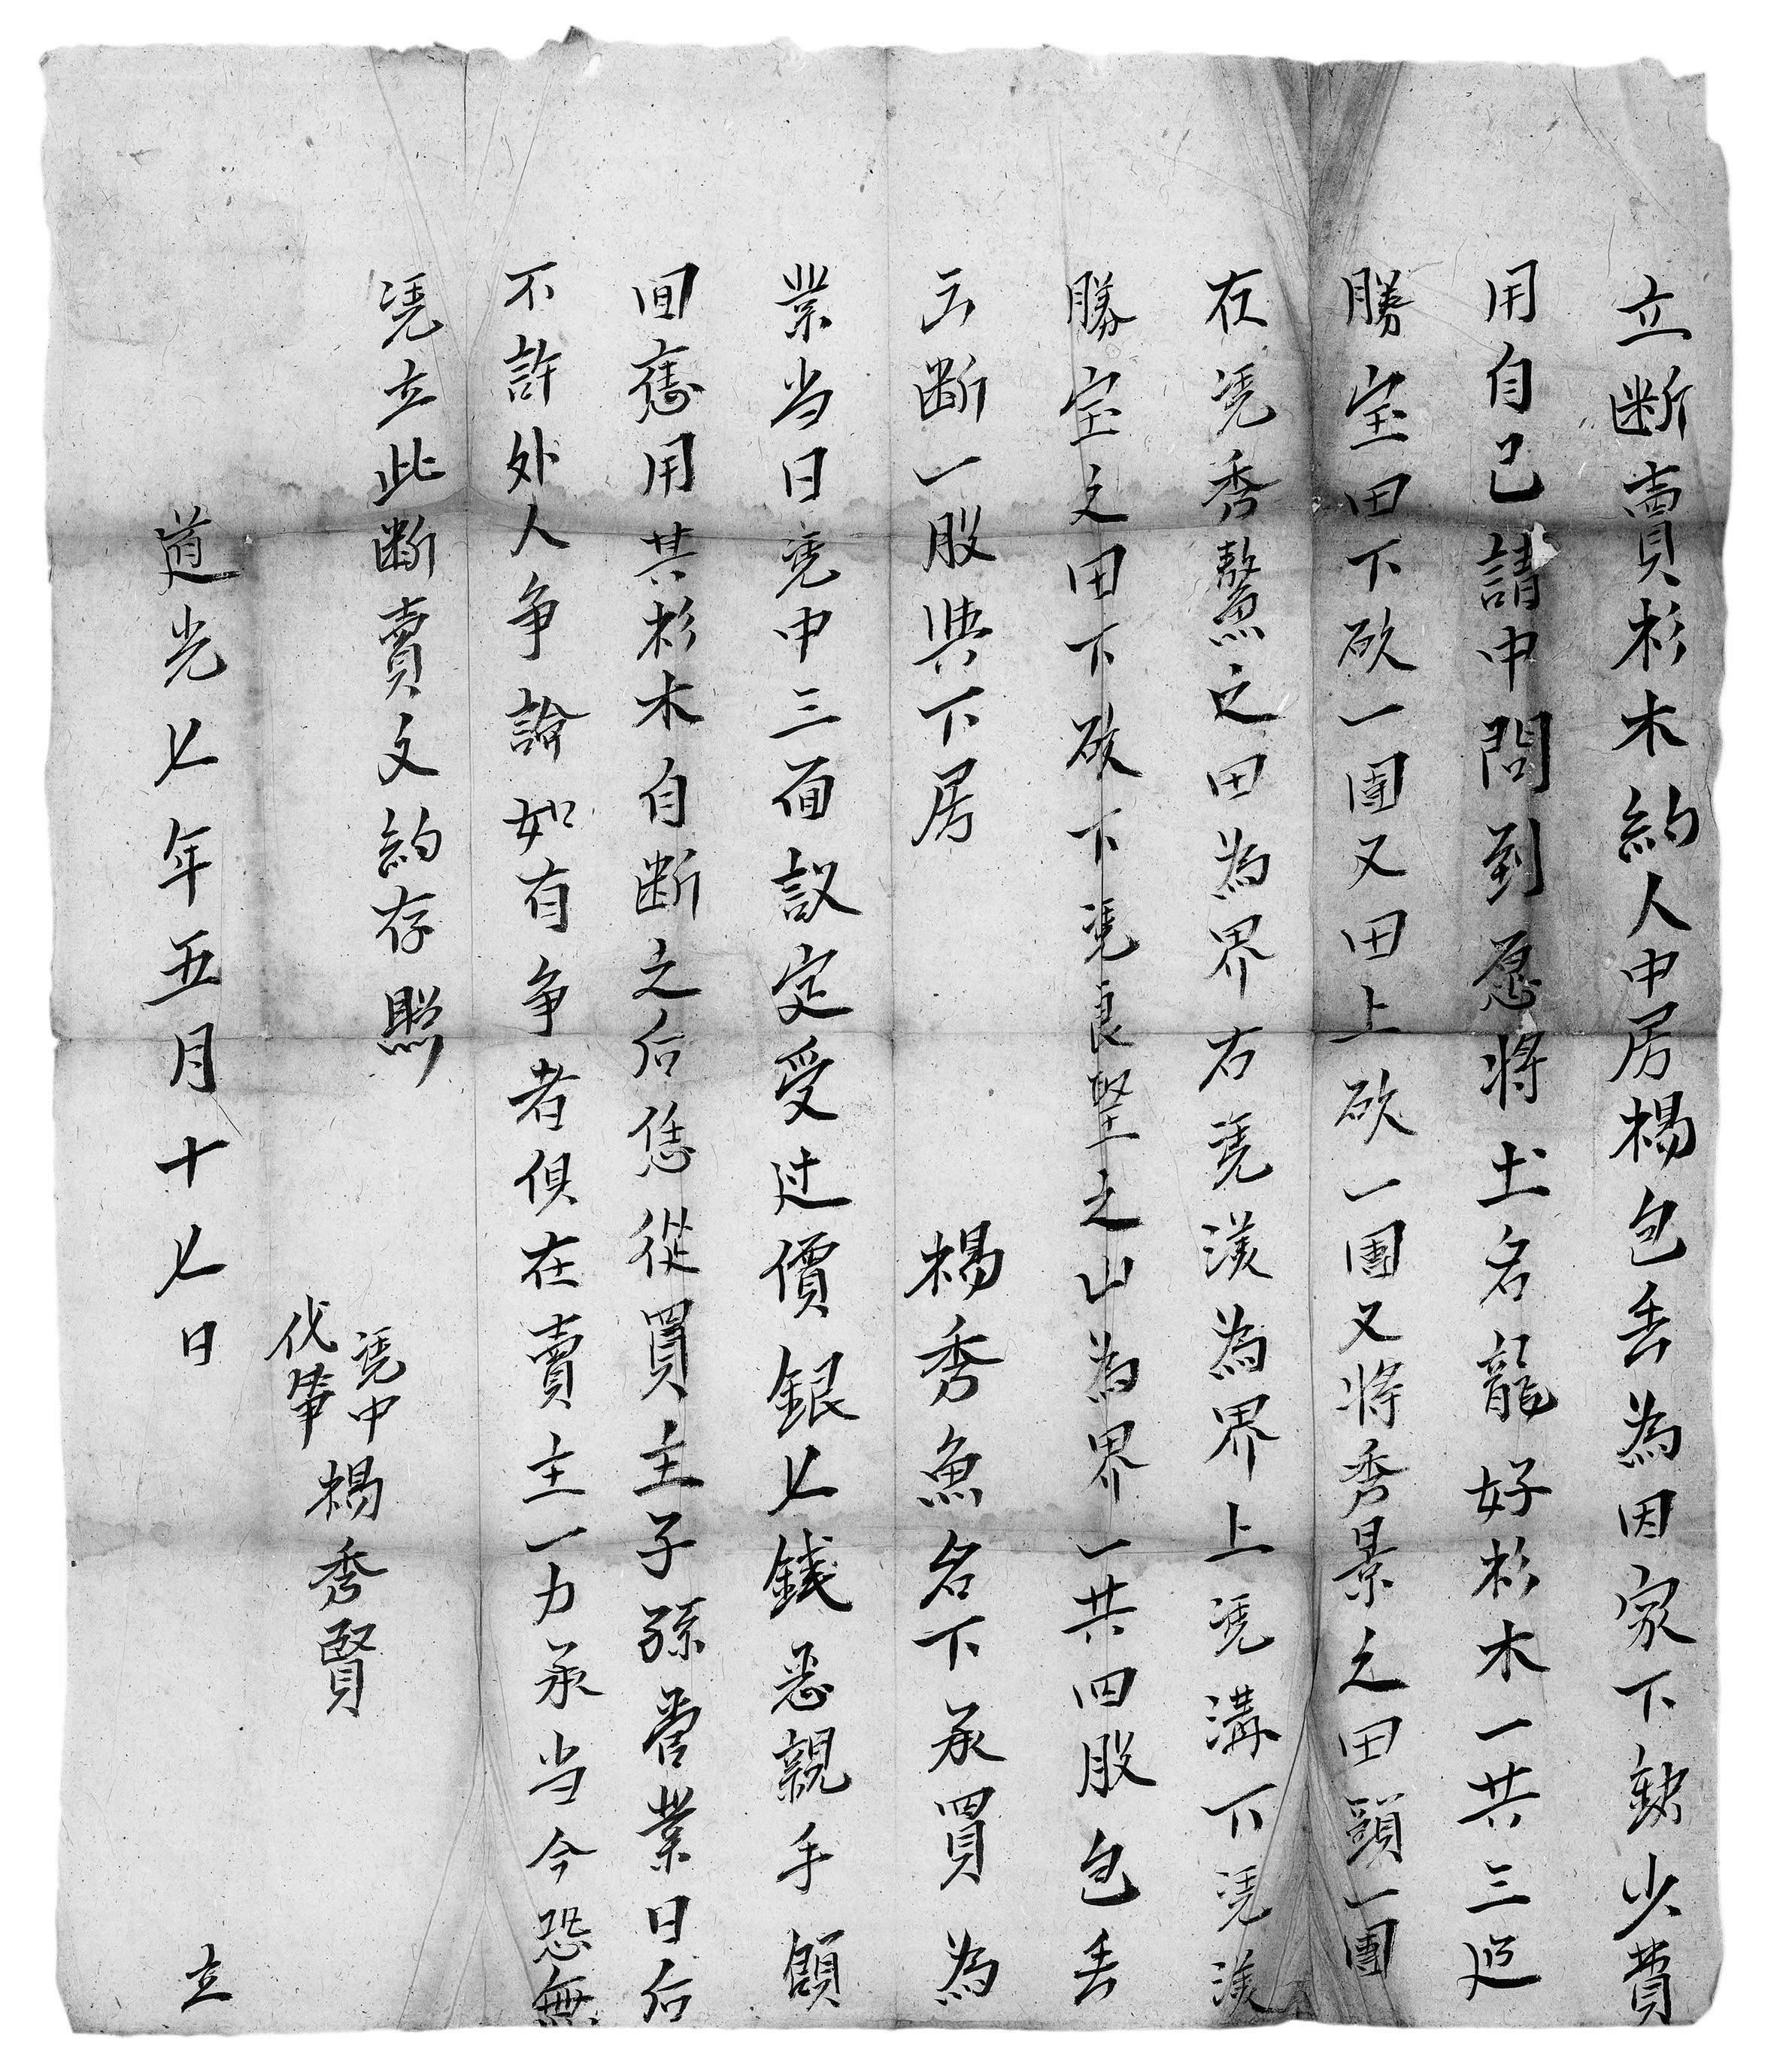 立断賣杉木約人中居楊包丢為因家下缺少費
用自己請中問到愿將土名龍好杉木一共三處
勝宝田下砍一團又田上砍一團又將秀景之田頭一團
在凭秀鰲之田為界右凭漢為界上凭溝下凭漢
勝宝之田下砍下凭良堅之山為界一共四股包丢
占断一股典下居　楊秀魚名下承買為
業当日凭中三面議定受过價銀七錢悉親手領
回應用其杉木自断之后恁從買主子孫管業日后
不許外人争論如有争者俱在賣主一力承当今恐無
凭立此断賣文約存照
凭中
代筆　楊秀賢
道光七年五月十七日　立